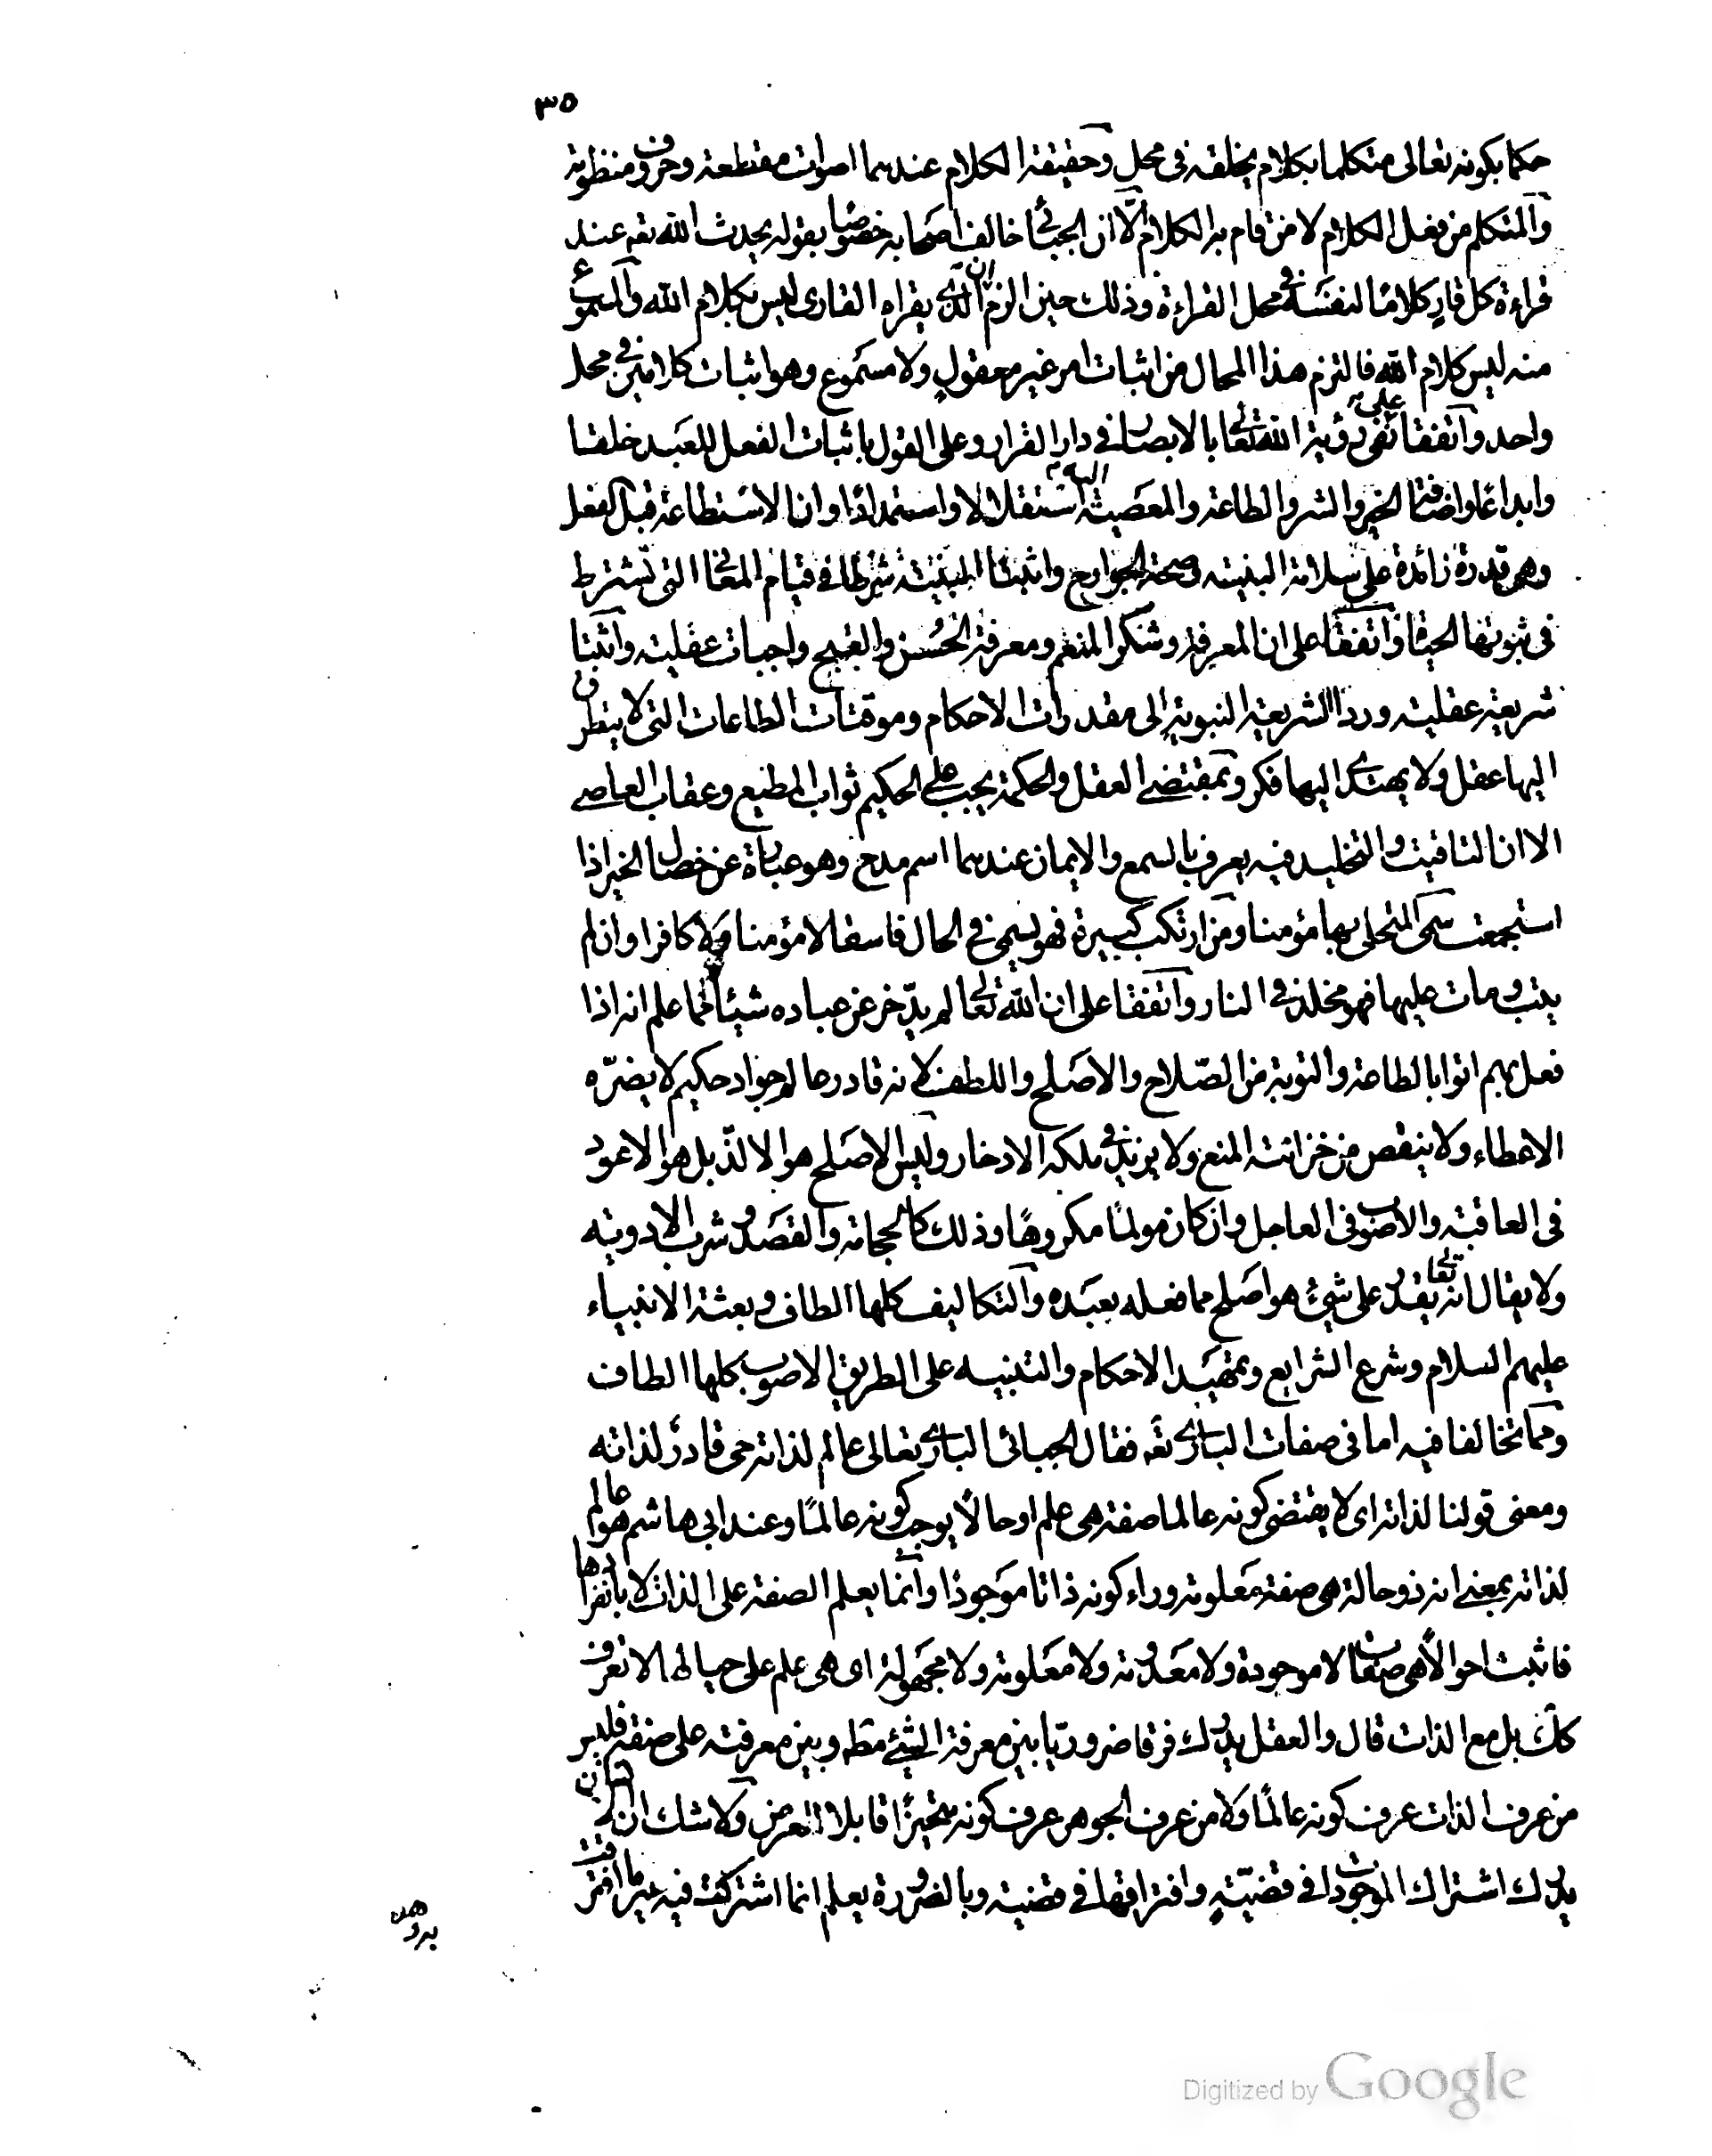 ٣٥
حكما بكونه تعالى متكلما بكلام يخلقه فى محل وحقيقة الكلام عندهما اصوات مقطعة وحروف منظومة
والمتكلم من فعل الكلام لا من قام به الكلام الّا ان الجبائى خالف اصحابه خصوصا بقوله يحدث الله تعه عند
قراءة كل قارٍ كلامًا لنفسه فى محل القراءة وذلك حين الزم ان الذى يقراه القارى ليس بكلام الله والمسموع
منه ليس كلام الله فالتزم هذا المحال من اثبات امر غير معقولٍ ولا مسموع وهو اثبات كلامين فى محل
واحد واتفقا على نفى رؤية الله تعالى بالابصار فى دار القرار وعلى القول باثبات الفعل للعبد خلقا
وابداعًا واضافة الخير والشر والطاعة والمعصية اليه استقلالا واستبدادًا وان الاستطاعة قبل الفعل
وهى قدرة زائدة على سلامة البنية وصحة الجوارح واثبتا البنية شرطا فى قيام المعانى التى تشترط
فى ثبوتها الحيوة واتفقا على ان المعرفة وشكر المنعم ومعرفة الحُسن والقبح واجبات عقلية واثبتا
شريعة عقلية وردا الشريعة النبوية الى مقدرات الاحكام وموقتات الطاعات التى لا يتطرق
اليها عقل ولا يهتدى اليها فكر وبمقتضى العقل والحكمة يجب على الحكيم ثواب المطيع وعقاب العاصى
الا ان التاقيت والتخليد فيه يعرف بالسمع والايمان عندهما اسم مدح وهو عبارة عن خصال الخير اذا
استجمعت سمى المتحلى بها مؤمنا ومن ارتكب كبيرة فهو يسمى فى الحال فاسقا لا مؤمنا ولا كافرا وان لم
يتب ومات عليها فهو مخلد فى النار واتفقا على ان الله تعالى لم يدّخر عن عباده شيئا مما علم انه اذا
فعل بهم اتوا بالطاعة والتوبة من الصّلاح والاصلح واللطف لانه قادر عالم جواد حكيم لا يضرّه
الاعطاء ولا ينقص من خزائنه المنع ولا يزيد فى ملكه الادخار وليس الاصلح هو الالذّ بل هو الاعود
فى العاقبة والاصوب فى العاجل وان كان مولمًا مكروهًا وذلك كالحجامة والفصد وشرب الادوية
ولا يقال انه تعالى يقدر على شىء هو اصلح مما فعله بعبده والتكاليف كلها الطاف وبعثة الانبياء
عليهم السلام وشرع الشرايع وتمهيد الاحكام والتنبيه على الطريق الاصوب كلها الطاف
ومما تخالفا فيه اما فى صفات البارى تعه فقال الجبائى البارى تعالى عالم لذاته حى قادر لذاته
ومعنى قولنا لذاته اى لا يقتضى كونه عالما صفة هى علم او حالًا يوجب كونه عالمًا وعند ابى هاشم هو عالم
لذاته بمعنى انه ذو حالة هى صفة معلومة وراء كونه ذاتا موجودا وانما يعلم الصفة على الذات لا بانفرادها
فاثبت احوالًا هى صفات لا موجودة ولا معدومة ولا معلومة ولا مجهولة اى هى علم على حيالها لا تعرف
كلك بل مع الذات قال والعقل يدرك فرقا ضروريّا بين معرفة الشئ مطه وبين معرفته على صفة فليس
من عرف الذات عرف كونه عالمًا ولا من عرف الجوهر عرف كونه متحيزًا قابلا للعرض ولا شك ان الانسان
يدرك اشتراك الموجودات فى قضيّةٍ وافتراقها فى قضية وبالضرورة يعلم ان ما اشتركت فيه غير ما افترقت
به وهذه
Digitized by Google